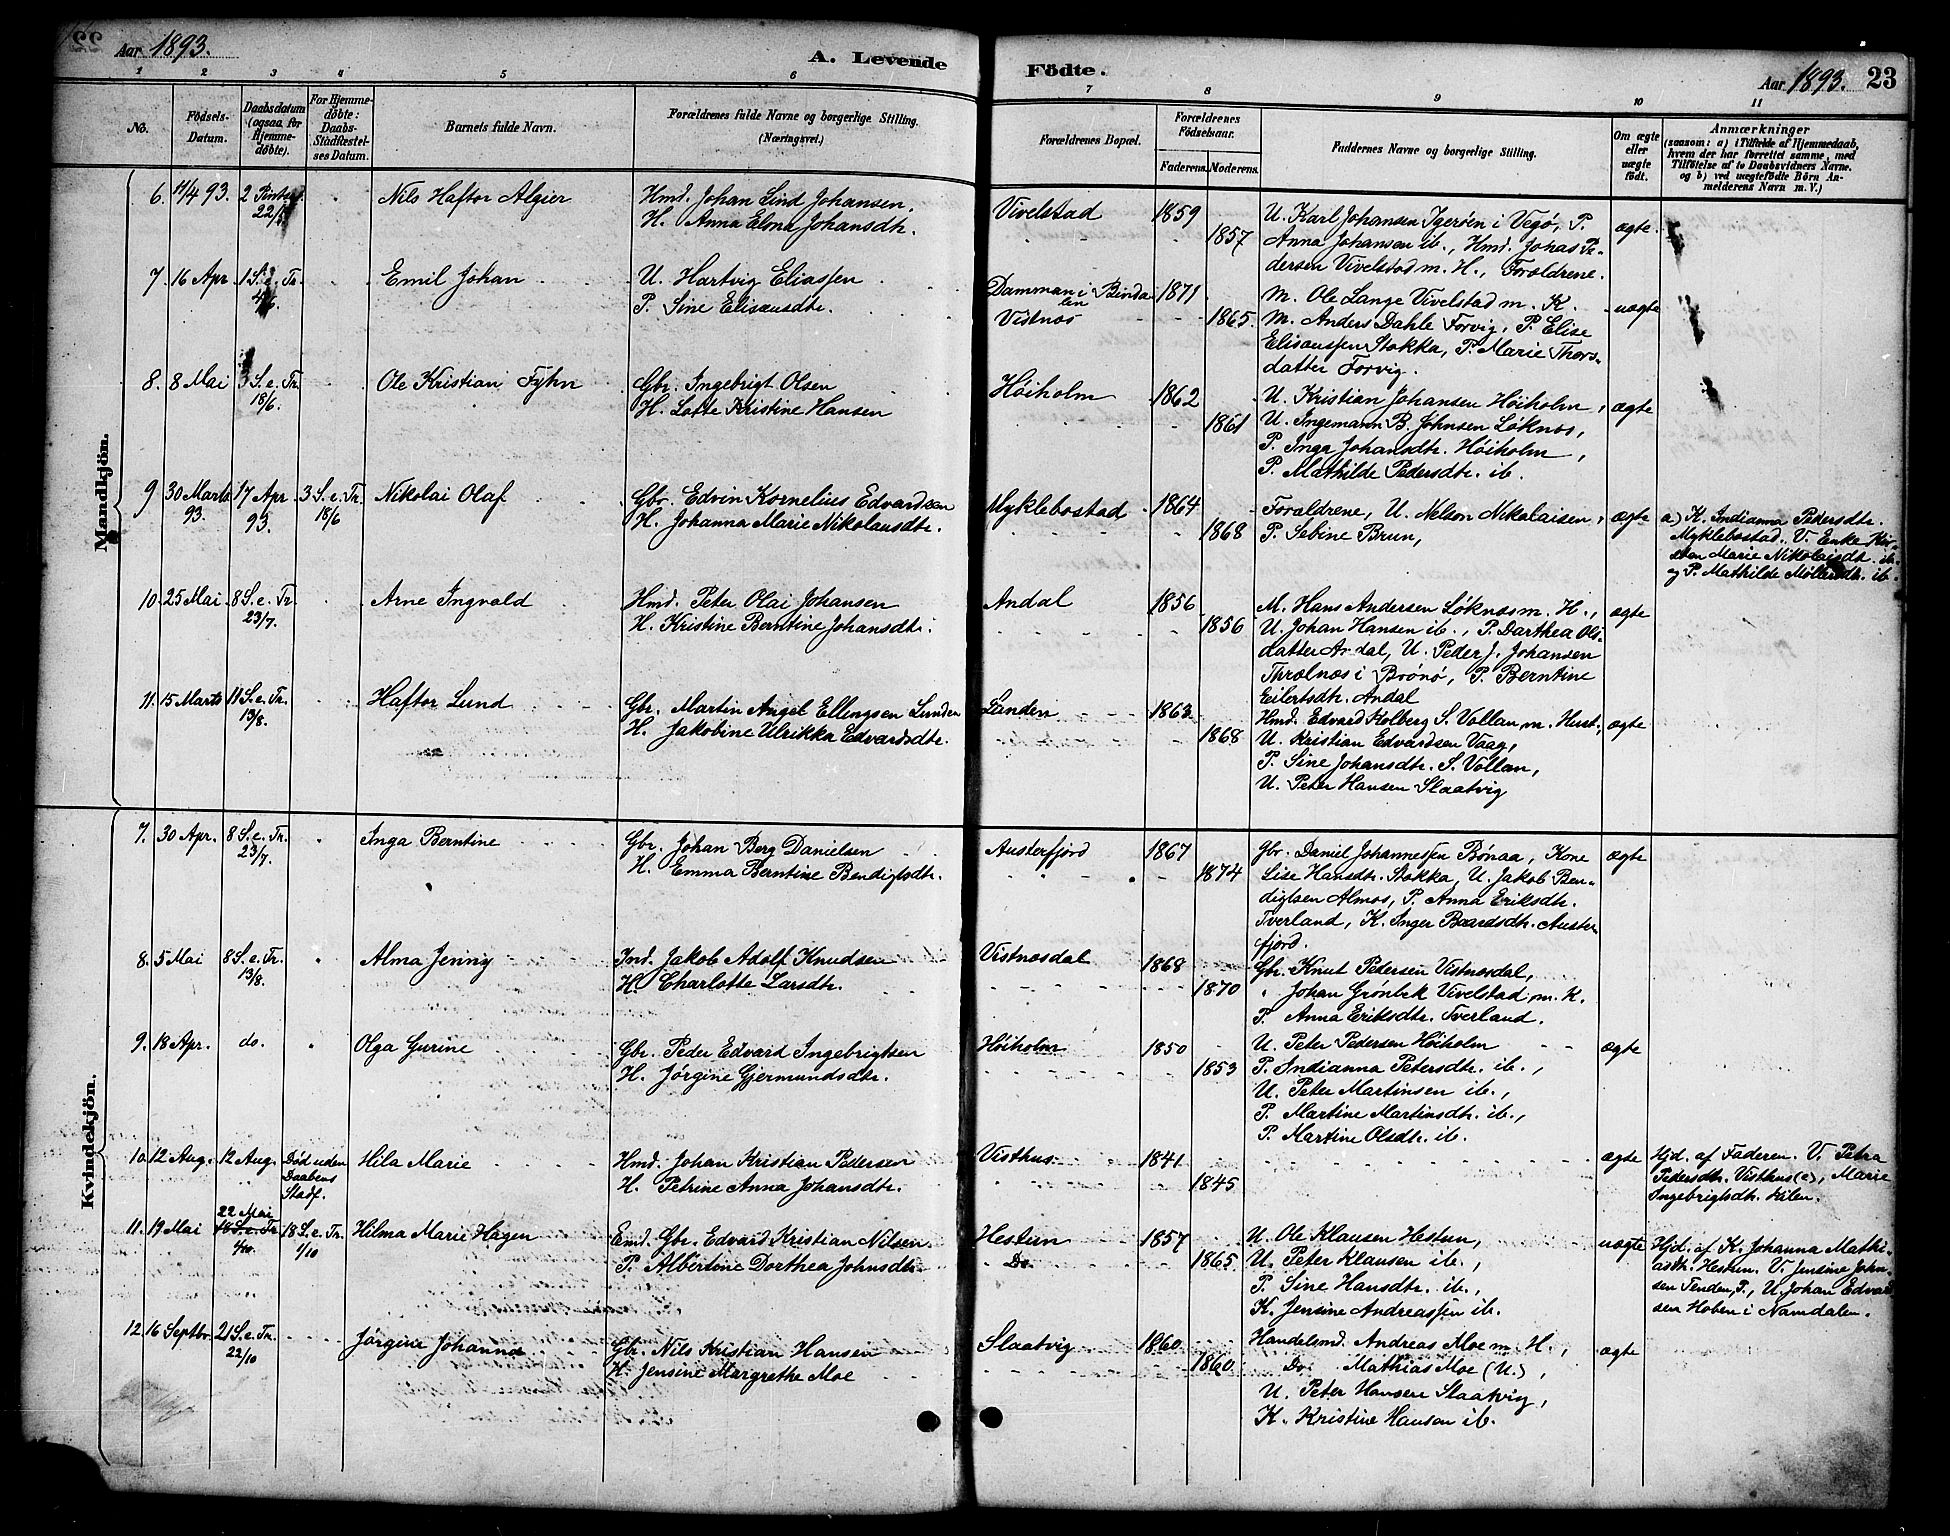 Aar 1893.
A. Levende
Födte.
Aar 1893. 23
1 2 3 4 5 6 7 8 9 10 11
No.
Födsels-Datum.
Daabsdatum (ogsaa for Hjemme-döbte).
For Hjemme-döbte: Daabs-Stadfæstel-ses Datum.
Barnets fulde Navn.
Forældrenes fulde Navne og borgerlige Stilling.
(Næringsvei.)
Forældrenes Bopæl.
Forældrenes Födselsaar.
Faderens. Moderens.
Faddernes Navne og borgerlige Stilling.
Om ægte eller uægte födt.
Anmærkninger
(saasom: a) i Tilfælde af Hjemmedaab, hvem der har forrettet samme, med Tilföielse af to Daabsvidners Navne, og b) ved uægtefödte Börn An-melderens Navn m. V.)
Mandkjön.
6. 11/4 93. 2 Pintsd. 22/5 Nils Haftor Algier
Hmd. Johan Lind Johansen.
H. Anna Elona Johansdtr.
Vivelstad 1859
1857
U. Karl Johansen Igerøen i Vegø, P.
Anna Johansen ib., Hmd. Johas Pe-
dersen Vivelstad m. H., Forældrene.
ægte.
7. 16 Apr. 1 S. e. Tr. 4/6. Emil Johan
U. Hartvig Eliassen
P. Sine Elisausdtr.
Damman i Bindalen 1871
Vistnæs 1865.
M. Ole Lange Vivelstad m. K.
M. Anders Dahle Forvig, P. Elise
Elisaussen Stokka, P. Marie Thors-
datter Forvig.
uægte
8. 8 Mai 3 S. e. Tr. 18/6. Ole Kristian Fyhn
Gbr. Ingebrigt Olsen
H. Lotte Kristine Hansen
Høiholm 1862
1861
U. Kristian Johansen Høiholm,
U. Ingemann B. Johnsen Løknæs,
P. Inga Johansdtr. Høiholm,
P. Mathilde Pedersdtr. ib.
ægte
9 30 Marts 93. 17 Apr. 93. 3 S. e. Tr. 18/6 Nikolai Olaf
Gbr. Edvin Kornelius Edvardsen
H. Johanna Marie Nikolausdtr.
Myklebostad 1864
1868
Forældrene, U. Nelson Nikolaisen,
P. Sebine Brun,
ægte
a) K. Indianna Pedersdtr.
Myklebostad. V. Enke Kir-
sten Marie Nikolaisdt. ib.
og P. Mathilde Møllersdtr. ib.
10. 25 Mai 8 S. e. Tr. 23/7. Arne Ingvald
Hmd. Peter Olai Johansen
H. Kristine Berntine Johansdtr.
Andal 1856
1856
M. Hans Andersen Løknæs m. H.,
U. Johan Hansen ib., P. Darthea Ols-
datter Andal, U. Peder J. Johansen
Thrælnæs i Brønø, P. Berntine
Eilertsdtr. Andal
ægte
11. 15 Marts 11 S. e. Tr. 13/8. Haftor Lund
Gbr. Martin Angel Ellingsen Lunden
H. Jakobine Ulrikka Edvardsdtr.
Lunden 1863
1868
Hmd. Edvard Holberg S. Vollan m. Hust.,
U. Kristian Edvardsen Vaag,
P. Sine Johansdtr. S. Vollan,
U. Peter Hansen Slaatvig
ægte
Kvindekjön.
7. 30 Apr. 8 S. e. Tr. 23/7. Inga Berntine
Gbr. Johan Berg Danielsen
H. Emma Berntine Bendigtsdtr.
Austerfjord 1867
1874
Gbr. Daniel Johannessen Bønaa, Kone
Lise Hansdtr. Stokka, U. Jakob Ben-
digtsen Almos, P. Anna Eriksdtr.
Tverland, K. Inger Baardsdtr. Auster-
fjord.
ægte
8. 5 Mai 8 S. e. Tr. 13/8. Alma Jenny
Ind. Jakob Adolf Knudsen
H. Charlotte Larsdtr.
Vistnæsdal 1868
1870
Gbr. Knut Pedersen Vistnæsdal,
" Johan Grønbek Vivelstad m. K.
P. Anna Eriksdtr. Tverland.
9. 18 Apr. do. Olga Gurine
Gbr. Peder Edvard Ingebrigtsen
H. Jørgine Gjermundsdtr.
Høiholm 1850
1853
U. Peter Pedersen Høiholm
P. Indianna Petersdtr. ib.,
U. Peter Martinsen ib.,
P. Martine Martinsdtr. ib.,
P. Martine Olsdtr. ib.
ægte
10. 12 Aug. 12 Aug. Død uden Daabens Stadf. Hila Marie
Hmd. Johan Kristian Pedersen
H. Petrine Anna Johansdtr.
Visthus 1841
1845
ægte
Hjd. af Faderen. V. Petra
Pedersdtr. Visthus (e), Marie
Ingebrigtsdtr.
11. 19 Mai 22 Mai 18 S. e. Tr. 1/10. 18 S. e. Tr. 1/10 Hilma Marie Hagen
Emd. Gbr. Edvard Kristian Nilsen
P. Albertine Dorthea Johnsdtr.
Hestun 1857
Do. 1865
U. Ole Klausen Hestun,
U. Peter Klausen ib.,
P. Sine Hansdtr. ib.,
K. Jensine Andreassen ib.
uægte
Hjd. af K. Johanna Mathi-
asdtr. Hestun. V. Jensine John-
sen Tenden, P., U. Johan Edvard
sen Hoben i Namdalen.
12. 16 Septbr. 21 S. e. Tr. 22/10 Jørgine Johanna
Gbr. Nils Kristian Hansen
H. Jensine Margrethe Moe
Slaatvig 1860
1860
Handelsmd. Andreas Moe m. H.,
Do. Mathias Moe (U.),
U. Peter Hansen Slaatvig,
K. Kristine Hansen ib.
ægte